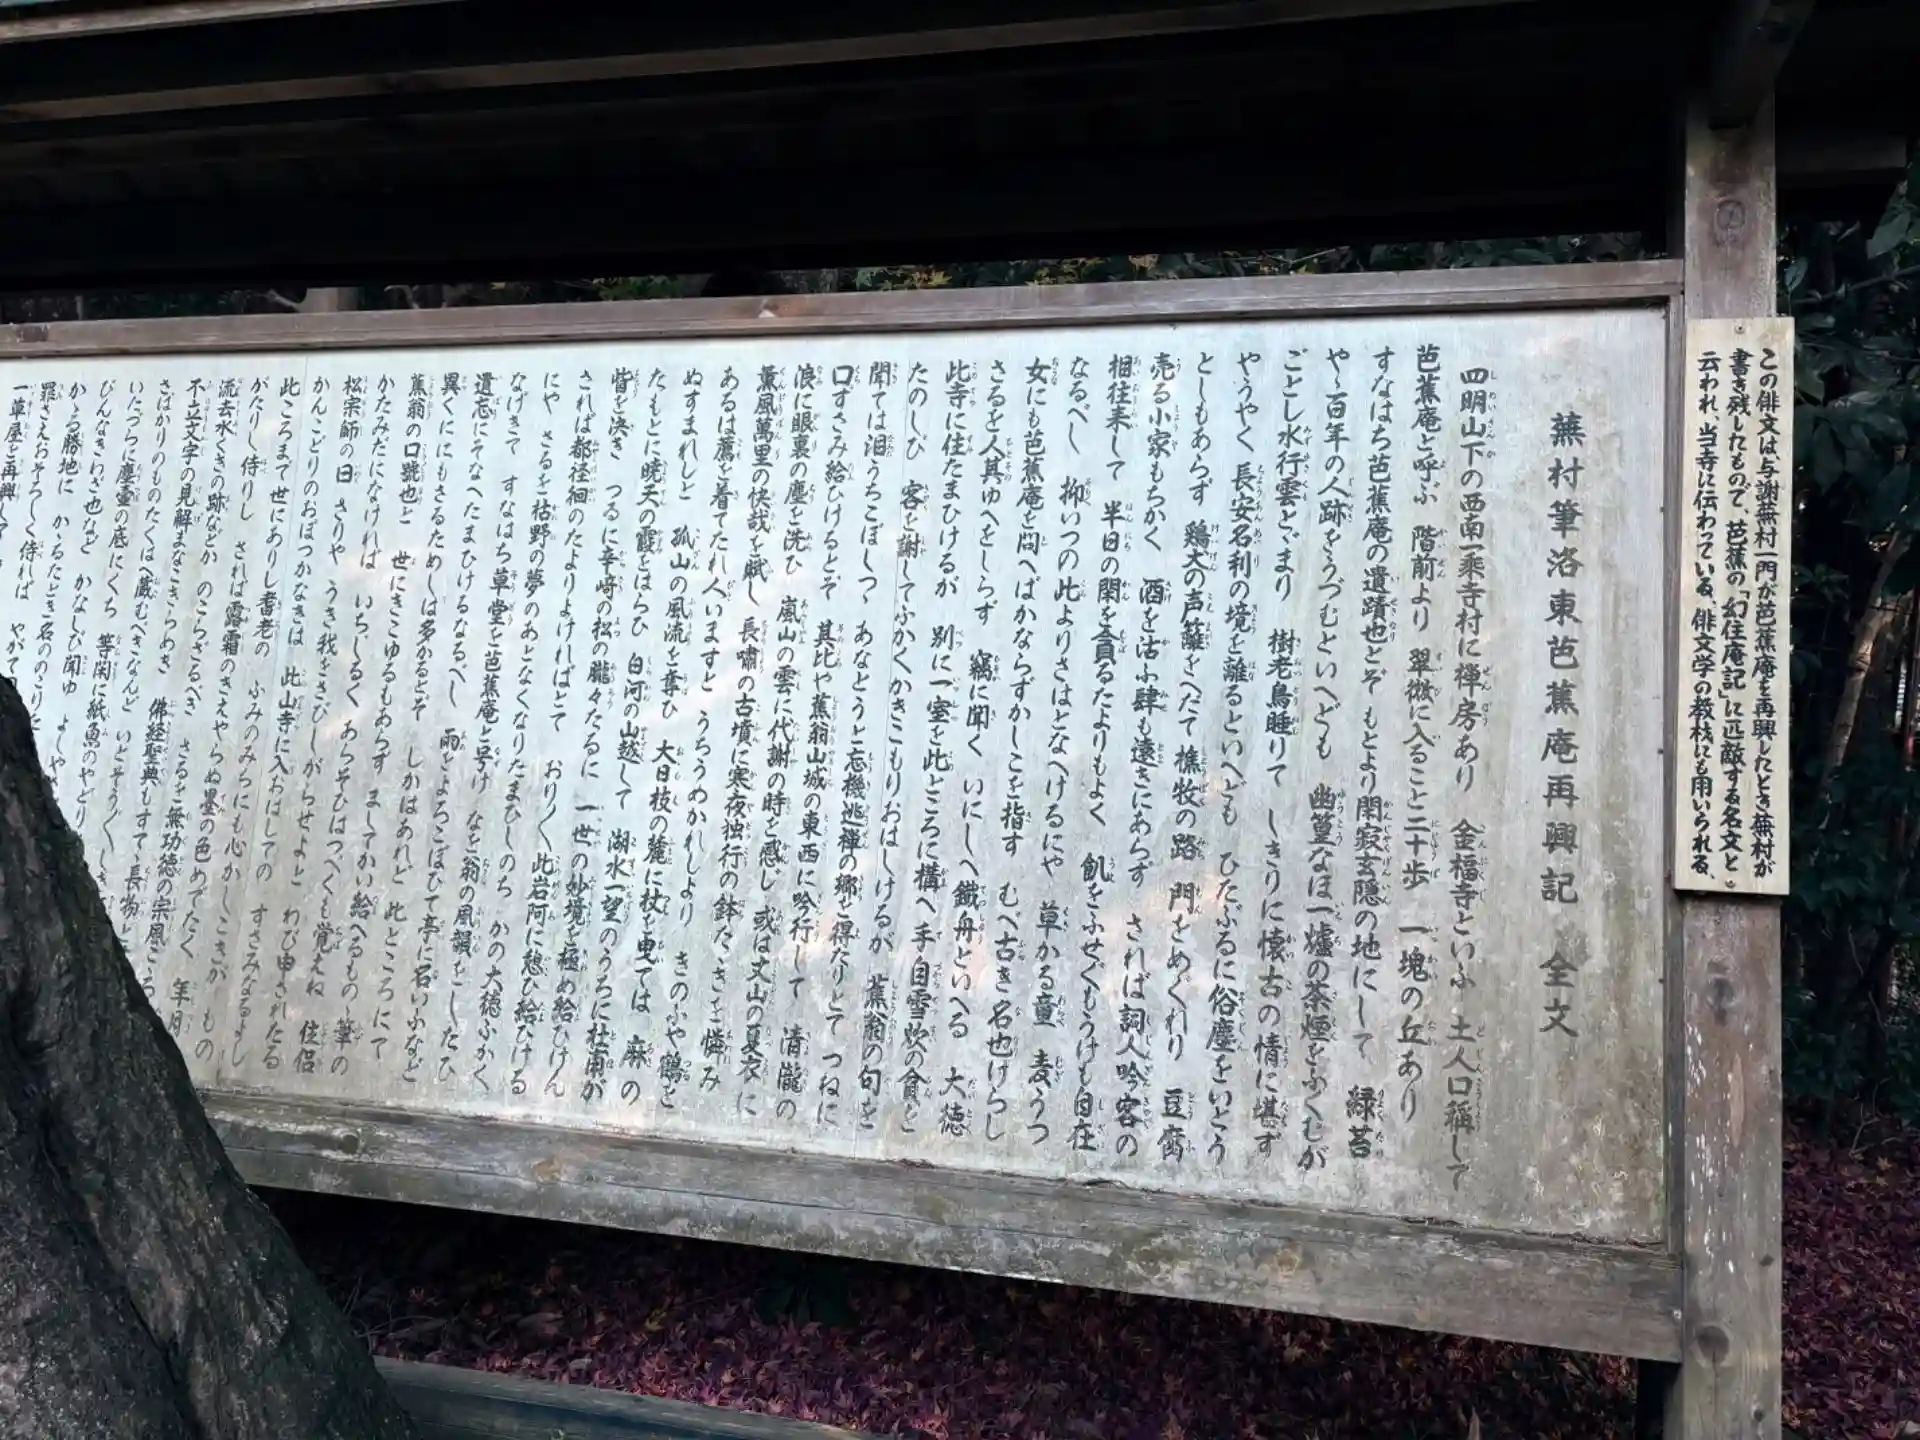 この俳文は、与謝蕪村一門が芭蕉庵を再興したとき蕪村が
書き残したもので、芭蕉の「幻住庵記」に匹敵する名文と
云われ、当寺に伝わっている、俳文学の教材にも用いられる、
蕪村筆洛東芭蕉庵再興記 全文
四明山下の西南一乗寺村に禅房あり 金福寺といふ 土人口稱して
芭蕉庵と呼ぶ 階前より 翠微に入ること二十歩 一塊の丘あり
すなはち芭蕉庵の遺蹟也とぞ もとより閑寂玄隠の地にして 緑苔
やゝ百年の人跡をうづむといへども 幽篁なほ一爐の茶煙をふくむが
ごとし水行雲とゞまり 樹老鳥睡りて しきりに懐古の情に堪ず
やうやく長安名利の境を離るといへども ひたぶるに俗塵をいとう
としもあらず 鶏犬の声籬をへだて樵牧の路 門をめぐれり 豆腐
売る小家もちかく 酒を沽ふ肆も遠きにあらず されば詞人吟客の
相往来して 半日の閑を貪るたよりもよく 飢をふせぐもうけも自在
なるべし 抑いつの比よりさはとなへけるにや 草かる童 麦うつ
女にも芭蕉庵を問へばかならずかしこを指す むべ古き名也けらし
さるを人其ゆへをしらず 竊に聞く いにしへ鐵舟といへる 大徳
此寺に住たまひけるが 別に一室を此ところに構へ手自雪炊の貪と
たのしび 客を謝してふかくかきこもりおはしけるが 蕉翁の句を
聞ては泪うちこぼしつゝあなとうと忘機逃禅の郷を得たりとて つねに
口ずさみ給ひけるとぞ 其比や蕉翁山城の東西に吟行して 清瀧の
浪に眼裏の塵を洗ひ 嵐山の雲に代謝の時を感じ 或は丈山の夏衣に
薫風萬里の快哉を賦し 長嘯の古墳に寒夜独行の鉢たゝきを憐み
あるは薦を着てたれ人いますと うちうめかれしより きのふや鶴を
ぬすまれしと 孤山の風流を奪ひ 大日枝の麓に杖を曳ては 麻の
たもとに暁天の霞をはらひ 白河の山越して 湖水一望のうちに杜甫が
眥を決き つゐに辛崎の松の朧々たるに 一世の妙境を極め給ひけん
されば都径徊のたよりよければとて おりく此岩阿に憩ひ給ひける
にや さるを枯野の夢のあとなくなりたまひしのち かの大徳ふかく
なげきて すなはち草堂を芭蕉庵と号け なを翁の風韻をしたひ
遺忘にそなへたまひけるなるべし 雨をよろこぼひて亭に名いふなど
異くににもさるためしは多かるとぞ しかはあれど 此ところにて
蕉翁の口號也と 世にきこゆるもあらず ましてかい給へるものゝ筆の
かたみだになければ いちゞるくあらそひはつべくも覚えね 住侶
松宗師の曰 さりや うき我をさびしがらせよと わび申されたる
かんこどりのおぼつかなきは 此山寺に入おはしての すさみなるよし
此ころまで世にありし耆老の ふみのみちにも心かしこきが もの
がたりし侍りし されば露霜のきえやらぬ墨の色めでたく 年月
流去水くきの跡などか のこらざるべき さるを無功徳の宗風こゝろ
不立文字の見解まなこきらめき 佛経聖典もすてゝ長物と
さばかりのものたくはへ蔵むべきなんど いとそうぐしき
いたづらに塵壷の底にくち 等閑に紙魚のやどり
びんなきわざ也など かなしび聞ゆ よしや
かゝる勝地に かゝるたとき名ののこりた
罪さえおそろしく侍れば やがて
一草屋を再興して